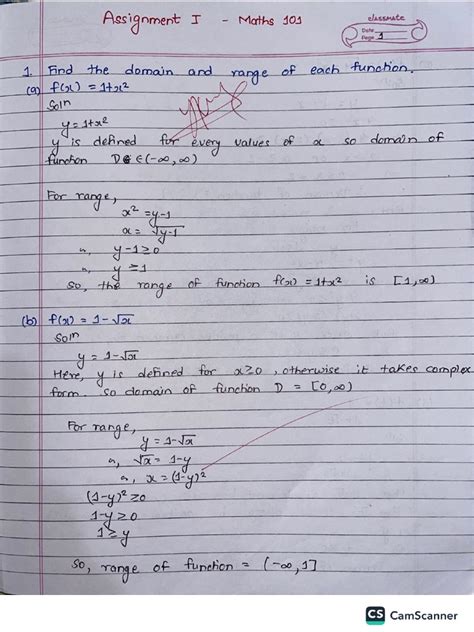 Assignment I - Maths 101
classmate
Date
Page 1
1. Find the domain and range of each function.
(a) f(x) = 1+x²
Soln
y = 1+x²
y is defined for every values of x so domain of
function D ∈ (-∞, ∞)
For range,
x² = y-1
x = √y-1
or, y-1≥0
or, y ≥1
So, the range of function f(x) = 1+x² is [1, ∞)
(b) f(x) = 1-√x
Soln
y = 1-√x
Here, y is defined for x≥0, otherwise it takes complex
form. so domain of function D = [0, ∞)
For range,
y = 1-√x
or, √x = 1-y
or, x = (1-y)²
(1-y)² ≥0
1-y ≥0
1≥ y
So, range of function = (-∞, 1]
CS CamScanner